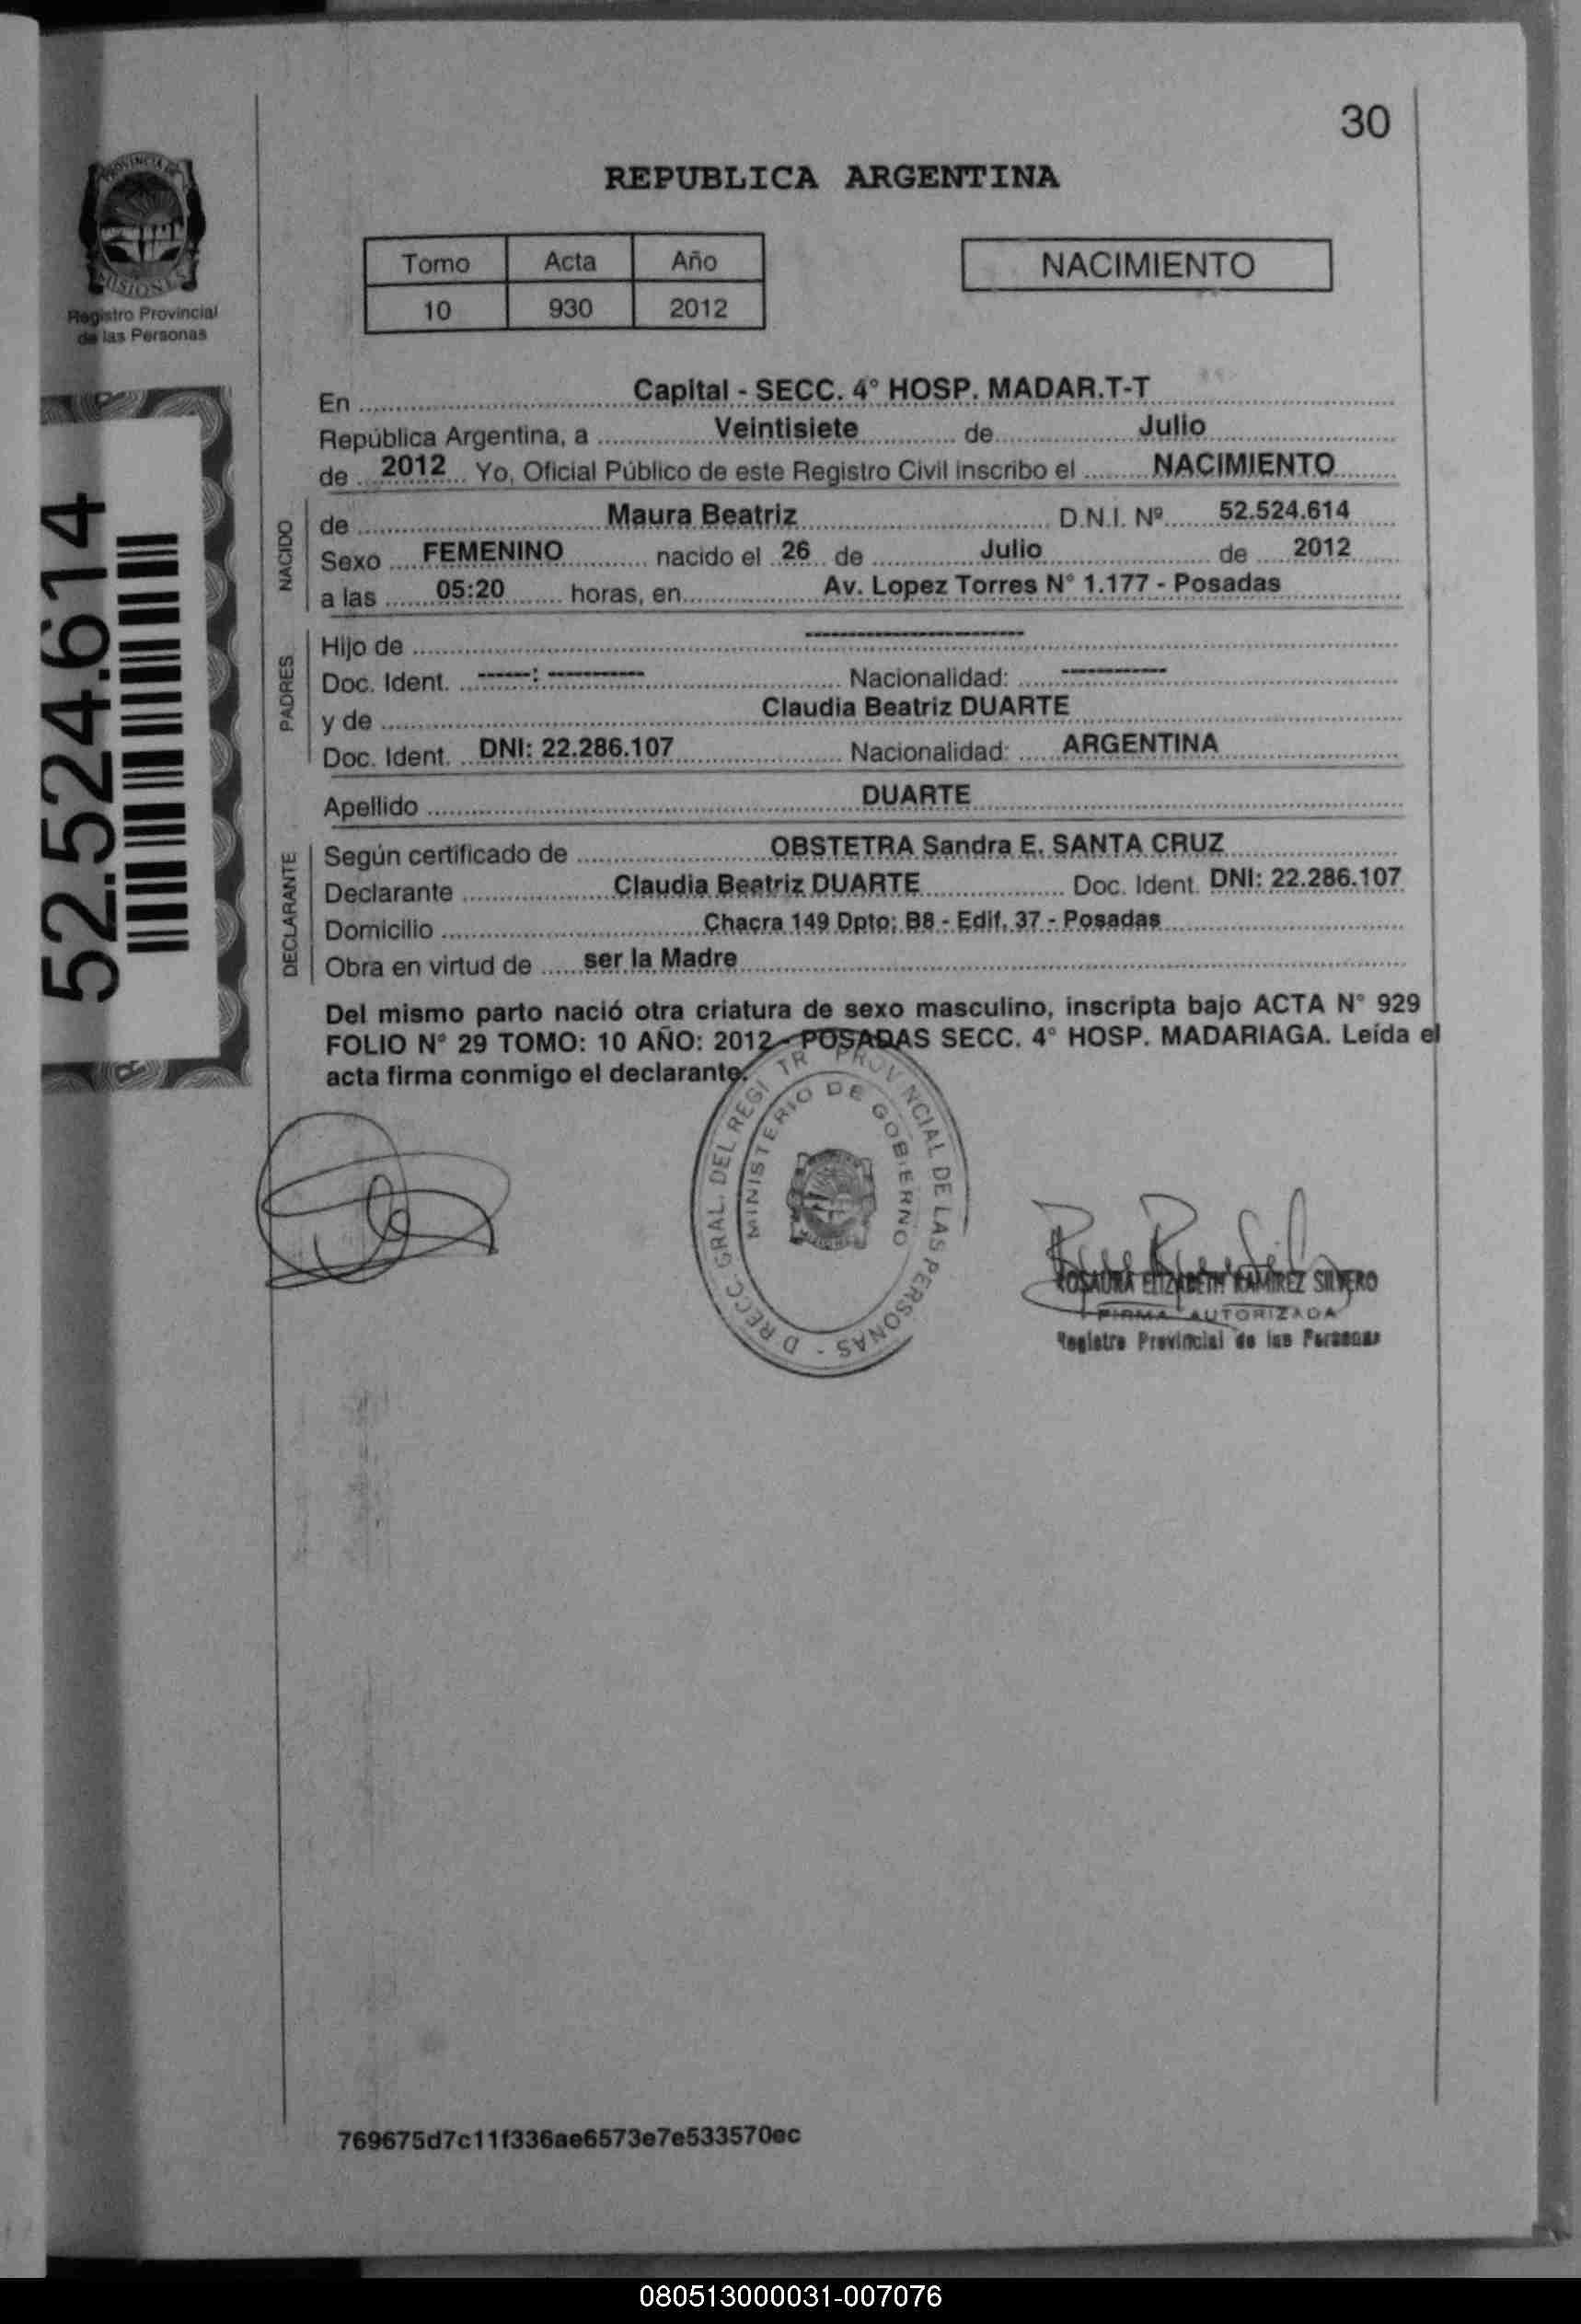 30
PROVINCIA DE
MISIONES
Registro Provincial
de las Personas
REPUBLICA ARGENTINA
Tomo Acta Año
10 930 2012
NACIMIENTO
52.524.614
En Capital - SECC. 4° HOSP. MADAR.T-T
República Argentina, a Veintisiete de Julio
de 2012 Yo, Oficial Público de este Registro Civil inscribo el NACIMIENTO
NACIDO
de Maura Beatriz D.N.I. Nº 52.524.614
Sexo FEMENINO nacido el 26 de Julio de 2012
a las 05:20 horas, en Av. Lopez Torres N° 1.177 - Posadas
PADRES
Hijo de --------------------
Doc. Ident. -----: --------- Nacionalidad: ----------
y de Claudia Beatriz DUARTE
Doc. Ident. DNI: 22.286.107 Nacionalidad: ARGENTINA
Apellido DUARTE
DECLARANTE
Según certificado de OBSTETRA Sandra E. SANTA CRUZ
Declarante Claudia Beatriz DUARTE Doc. Ident. DNI: 22.286.107
Domicilio Chacra 149 Dpto: B8 - Edif. 37 - Posadas
Obra en virtud de ser la Madre
Del mismo parto nació otra criatura de sexo masculino, inscripta bajo ACTA N° 929
FOLIO N° 29 TOMO: 10 AÑO: 2012 - POSADAS SECC. 4° HOSP. MADARIAGA. Leída el
acta firma conmigo el declarante.
D RECC. GRAL. DEL REGI TR PROVINCIAL DE LAS PERSONAS -
MINISTERIO DE GOBIERNO
ROSAURA ELIZABETH RAMIREZ SILVERO
FIRMA AUTORIZADA
Registro Provincial de las Personas
769675d7c11f336ae6573e7e533570ec
080513000031-007076